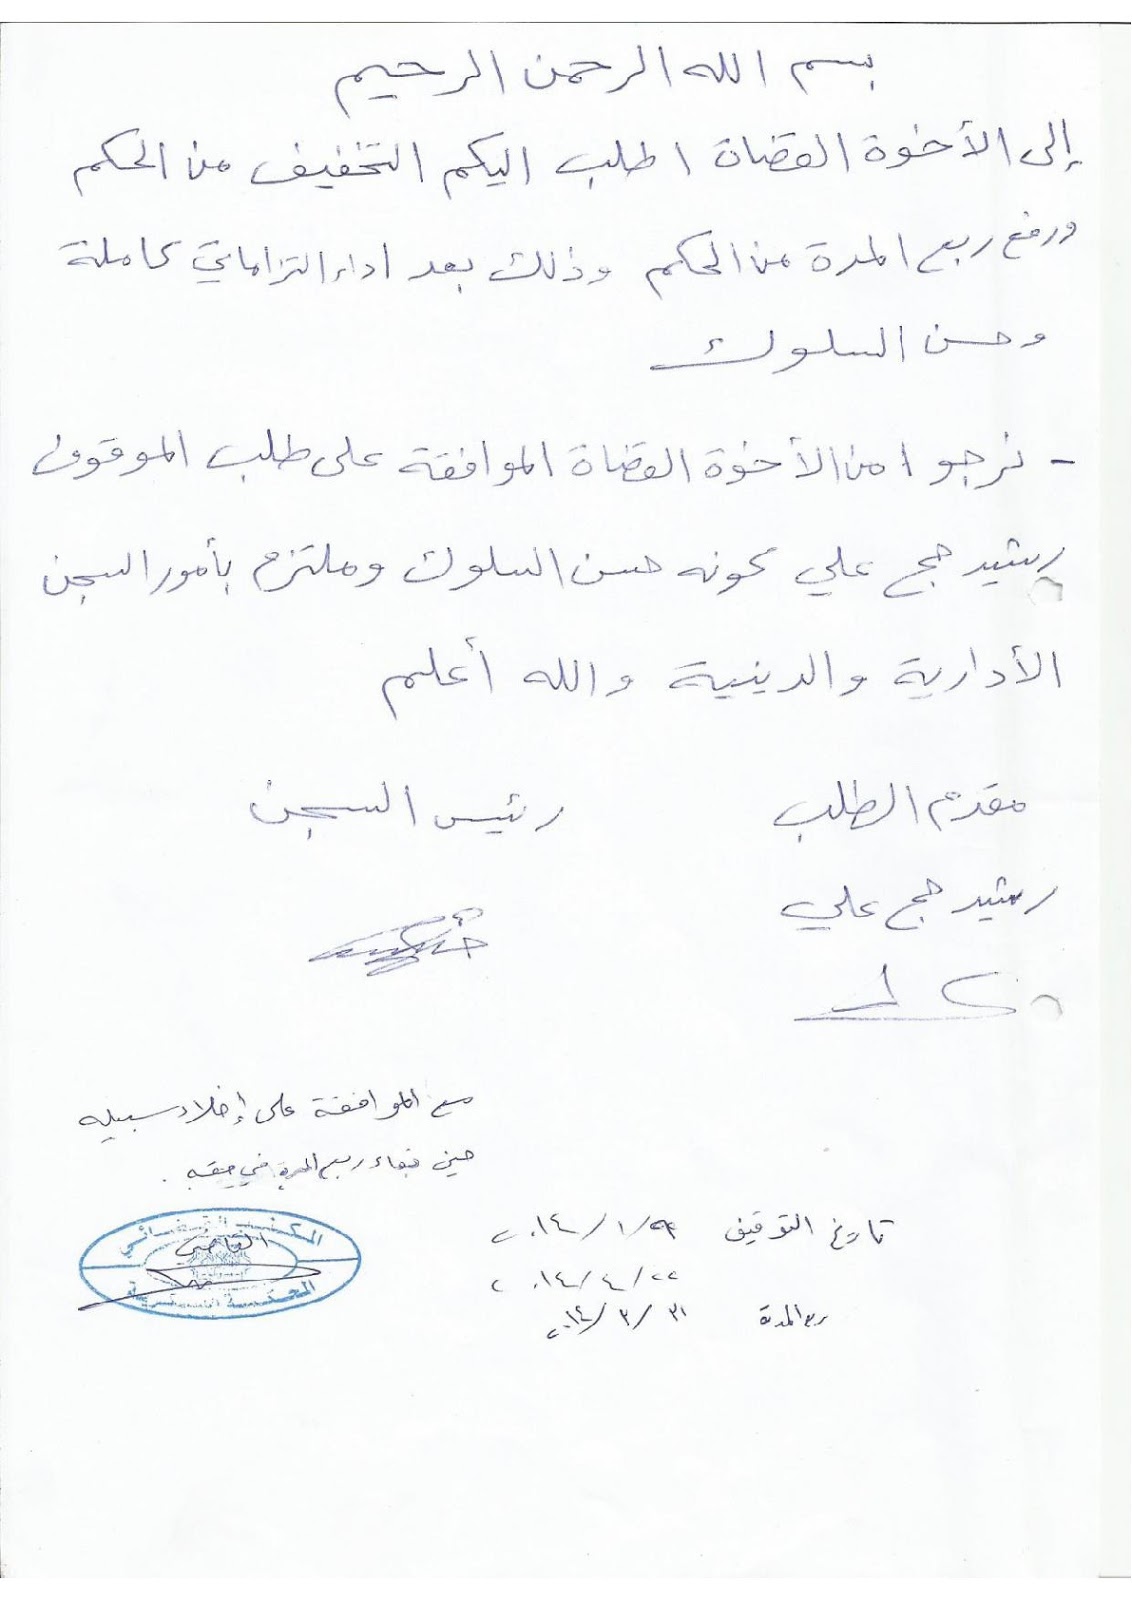 بسم الله الرحمن الرحيم
إلى الأخوة القضاة اطلب اليكم التخفيف من الحكم
ورفع ربع المدة من الحكم وذلك بعد اداء التزاماتي كاملة
وحسن السلوك
- نرجوا من الأخوة القضاة الموافقة على طلب الموقوف
رشيد حج علي كونه حسن السلوك وملتزم بأمور السجن
الأدارية والدينية والله أعلم
مقدم الطلب
رئيس السجن
رشيد حج علي
مع الموافقة على إخلاء سبيله
حين قضاء ربع المدة في حقه.
المكتب القضائي
القاضي
المحكمة
تاريخ التوقيف ٢٠١٤/١/٢٩
٢٠١٤/٤/٢٢
ربع المدة ٢٠١٤/٣/٣١